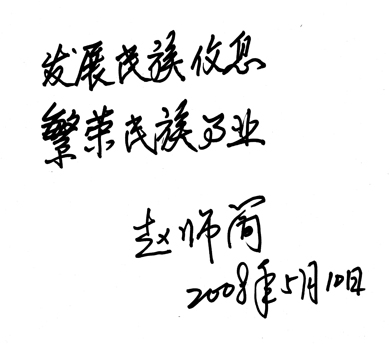 发展民族信息
繁荣民族事业
赵师简
2008年5月10日